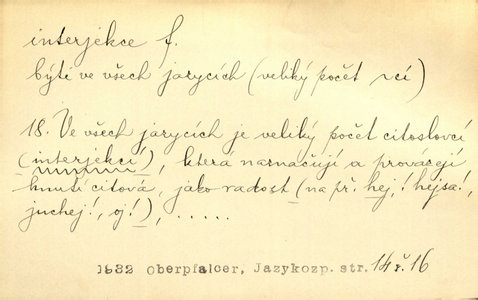 interjekce f.
býti ve všech jazycích (veliký počet -cí)
18. Ve všech jazycích je veliký počet citoslovcí
(interjekcí), která naznačují a provázejí
hnutí citová, jako radost (na př. hej!, hejsa!,
juchej!, oj!), . . . . . .
1932 Oberpfalcer, Jazykozp. str. 14 ř. 16